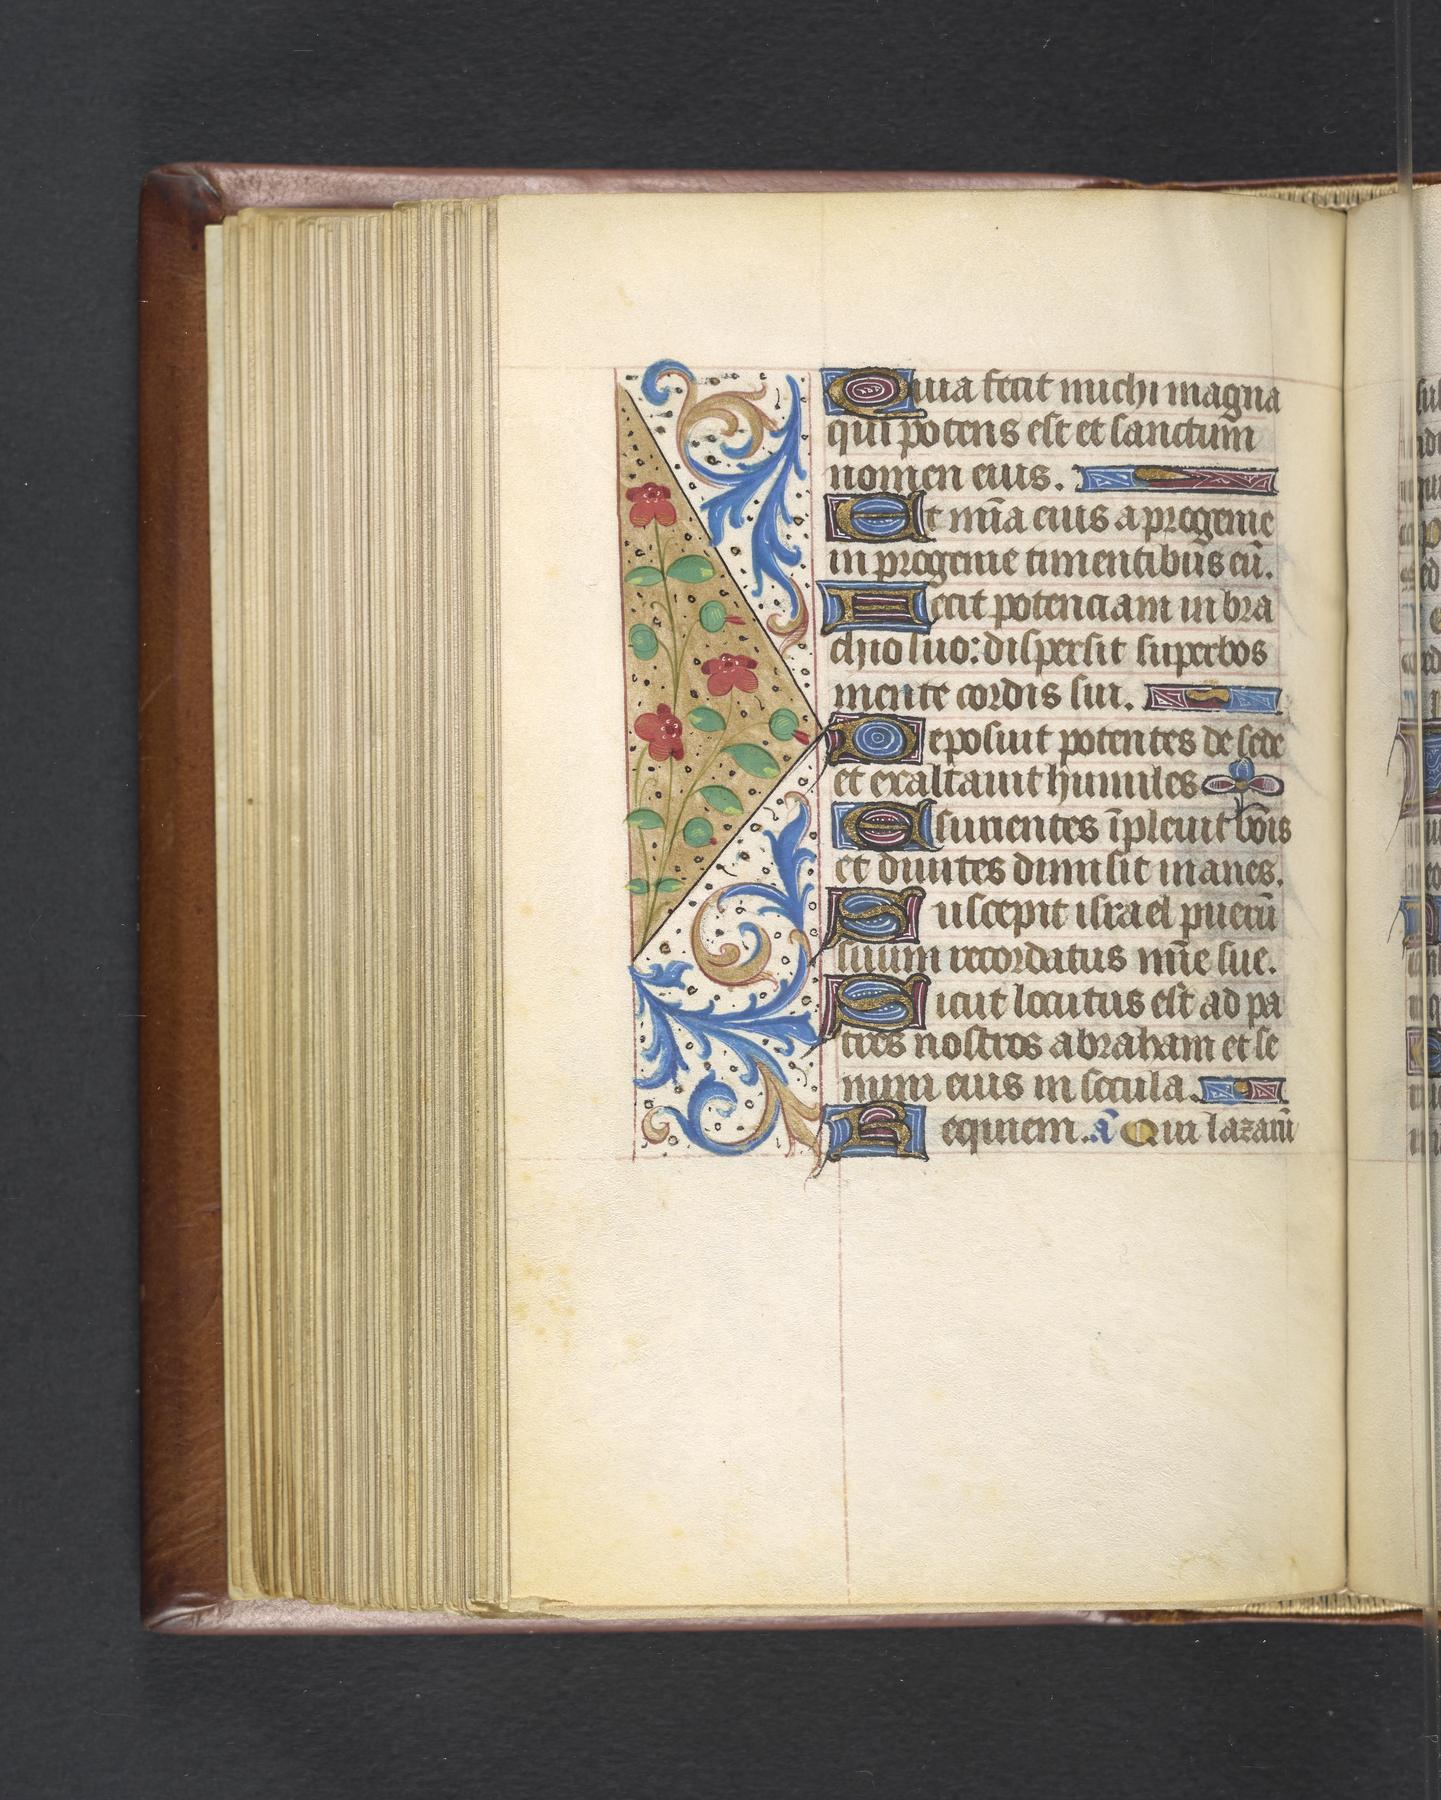 Quia fecit michi magna
qui potens est et sanctum
nomen eius.
Et mīa eius a progenie
in progenie timentibus eū.
Fecit potenciam in bra
chio suo: dispersit superbos
mente cordis sui.
Deposuit potentes de sede
et exaltauit humiles
Esurientes īpleuit bōis
et diuites dimisit inanes.
Suscepit israel puerū
suum recordatus mīe sue.
Sicut locutus est ad pa
tres nostros abraham et se
mini eius in secula.
Requiem. ā Qui lazarū